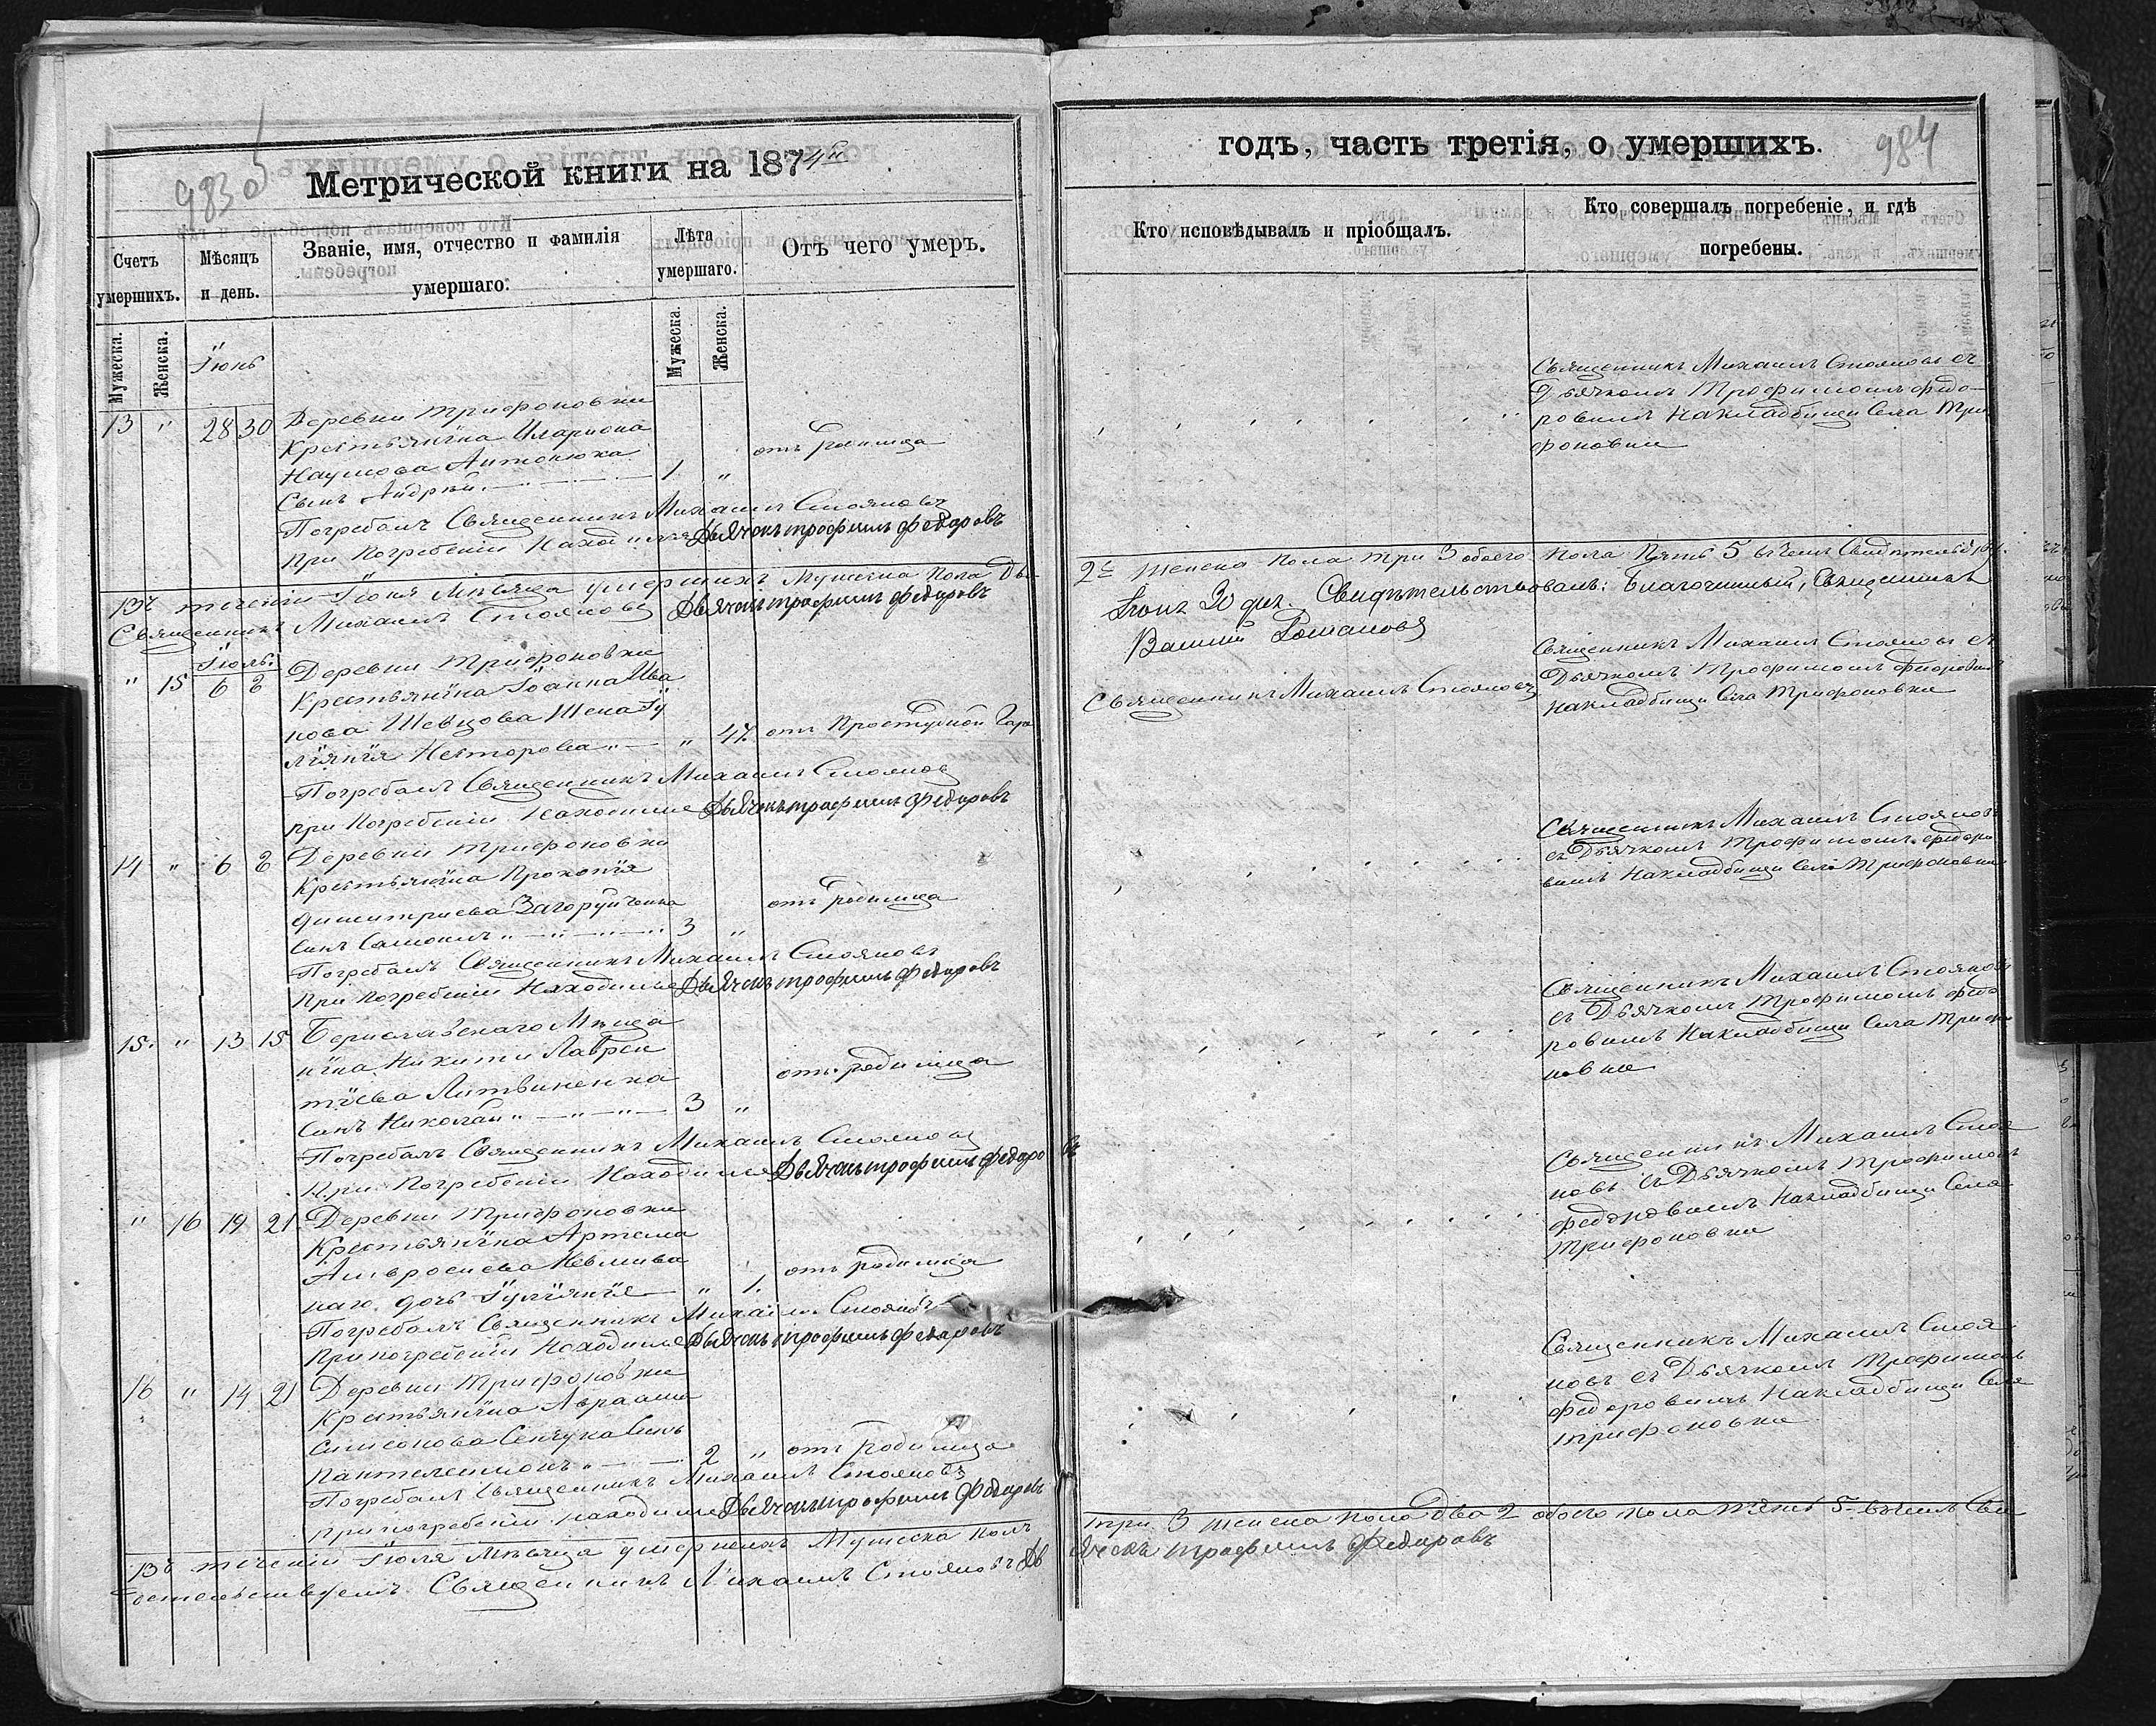 983 об
Метрической книги на 1874й
Счетъ умершихъ.
Мѣсяцъ и день.
Званіе, имя, отчество и фамилія умершаго.
Лѣта умершаго.
Отъ чего умеръ.
Мужеска.
Женска.
Мужеска.
Женска.
Іюнь
13 " 28 30 Деревни Трифоновки
Крестьянина Илариона
Наумова Антонюка
Сынъ Андрей. 1 " отъ родимца
Погребалъ Священникъ Михаилъ Стояновъ
При Погребеніи Находился Дьячокъ трофимъ федоровъ
Въ теченіи Іюня Мѣсяца умершихъ Мужеска Пола Два
Священникъ Михаилъ Стояновъ Дьячокъ трофимъ федоровъ
Іюль.
" 15 6 8 Деревни Трифоновки
Крестьянина Іоанна Ива
нова Шевцова Жена Іу
ліянія Несторова " 47. отъ Простудной Горя
Погребалъ Священникъ Михаилъ Стояновъ
при Погребеніи Находился Дьячокъ трофимъ федоровъ
14 " 6 8 Деревни Трифоновки
Крестьянина Прокопія
Димитриева Загоруйченка
Синъ Самоилъ 3 " отъ родимца
Погребалъ Священникъ Михаилъ Стояновъ
При погребеніи Находился Дьячокъ трофимъ федоровъ
15. " 13 15 Бериславскаго Мѣща
нина Никити Лаврен
тіева Литвиненка
Синъ Николай 3 " отъ родимца
Погребалъ Священникъ Михаилъ Стояновъ
При Погребеніи Находился Дьячокъ трофимъ федоровъ
" 16 19 21 Деревни Трифоновки
Крестьянина Артема
Амвросиева Невмива
наго дочь Іуліянія " 1. отъ родимца
Погребалъ Священникъ Михаилъ Стояновъ
При погребеніи Находился Дьячокъ трофимъ федоровъ
16 " 14 21 Деревни Трифоновки
Крестьянина Авраама
Симеонова Сенчука Синъ
Пантелеимонъ 2 " отъ родимца
Погребалъ Священникъ Михаилъ Стояновъ
При погребеніи находился Дьячокъ трофимъ федоровъ
Въ теченіи Іюля Мѣсяца умершихъ Мужеска пола
Священникъ Михаилъ Стояновъ Дь
984
годъ, часть третія, о умершихъ.
Кто исповѣдывалъ и пріобщалъ.
Кто совершалъ погребеніе, и гдѣ погребены.
Священникъ Михаилъ Стояновъ съ
Дьячкомъ Трофимомъ Федо
ровимъ На кладбищи Села Три
фоновки
2е Женска Пола три 3 обоего Пола Пять 5 въ чемъ Свидѣтельству.
Свидѣтельствовалъ: Благочинный, Священникъ
Василій
Священникъ Михаилъ Стояновъ
Священникъ Михаилъ Стояновъ съ
Дьячкомъ Трофимомъ Федоровимъ
На кладбищи Села Трифоновки
Священникъ Михаилъ Стояновъ
съ Дьячкомъ Трофимомъ Федоро
вимъ На кладбищи Села Трифоновки
Священникъ Михаилъ Стояновъ
съ Дьячкомъ Трофимомъ Федо
ровимъ На кладбищи Села Трифо
новки
Священникъ Михаилъ Стоя
новъ съ Дьячкомъ Трофимомъ
Федоровимъ На кладбищи Села
Трифоновки
Священникъ Михаилъ Стоя
новъ съ Дьячкомъ Трофимомъ
Федоровимъ На кладбищи Села
Трифоновки
три 3 Женска пола Два 2 обоего пола Пять 5 въ чемъ Сви
ячокъ трофимъ федоровъ